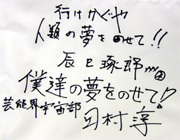 行けかぐや
人類の夢をのせて!!
辰巳琢郎
僕達の夢をのせて!?
芸能界宇宙部
田村淳